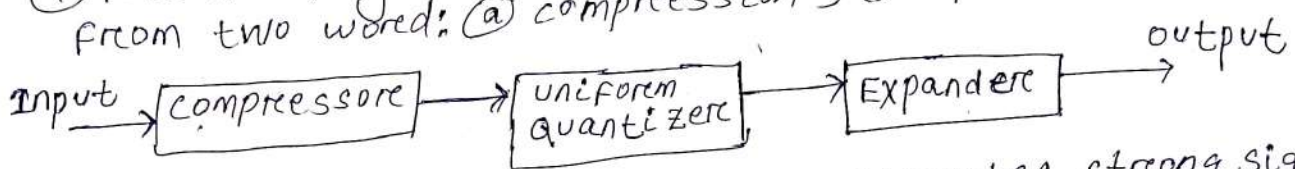 from two word: ⓐ compression,
output
Input
compressore
uniform
quantizere
Expandere
strong sig